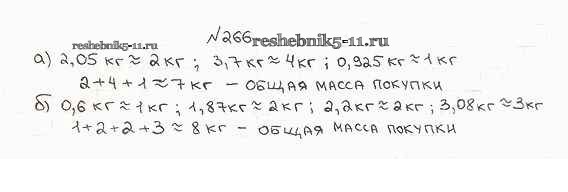 №266
reshebnik5-11.ru
reshebnik5-11.ru
а) 2,05 кг ≈ 2 кг ; 3,7 кг ≈ 4 кг ; 0,925 кг ≈ 1 кг
2 + 4 + 1 ≈ 7 кг – общая масса покупки
б) 0,6 кг ≈ 1 кг ; 1,87 кг ≈ 2 кг ; 2,2 кг ≈ 2 кг ; 3,08 кг ≈ 3 кг
1 + 2 + 2 + 3 ≈ 8 кг – общая масса покупки